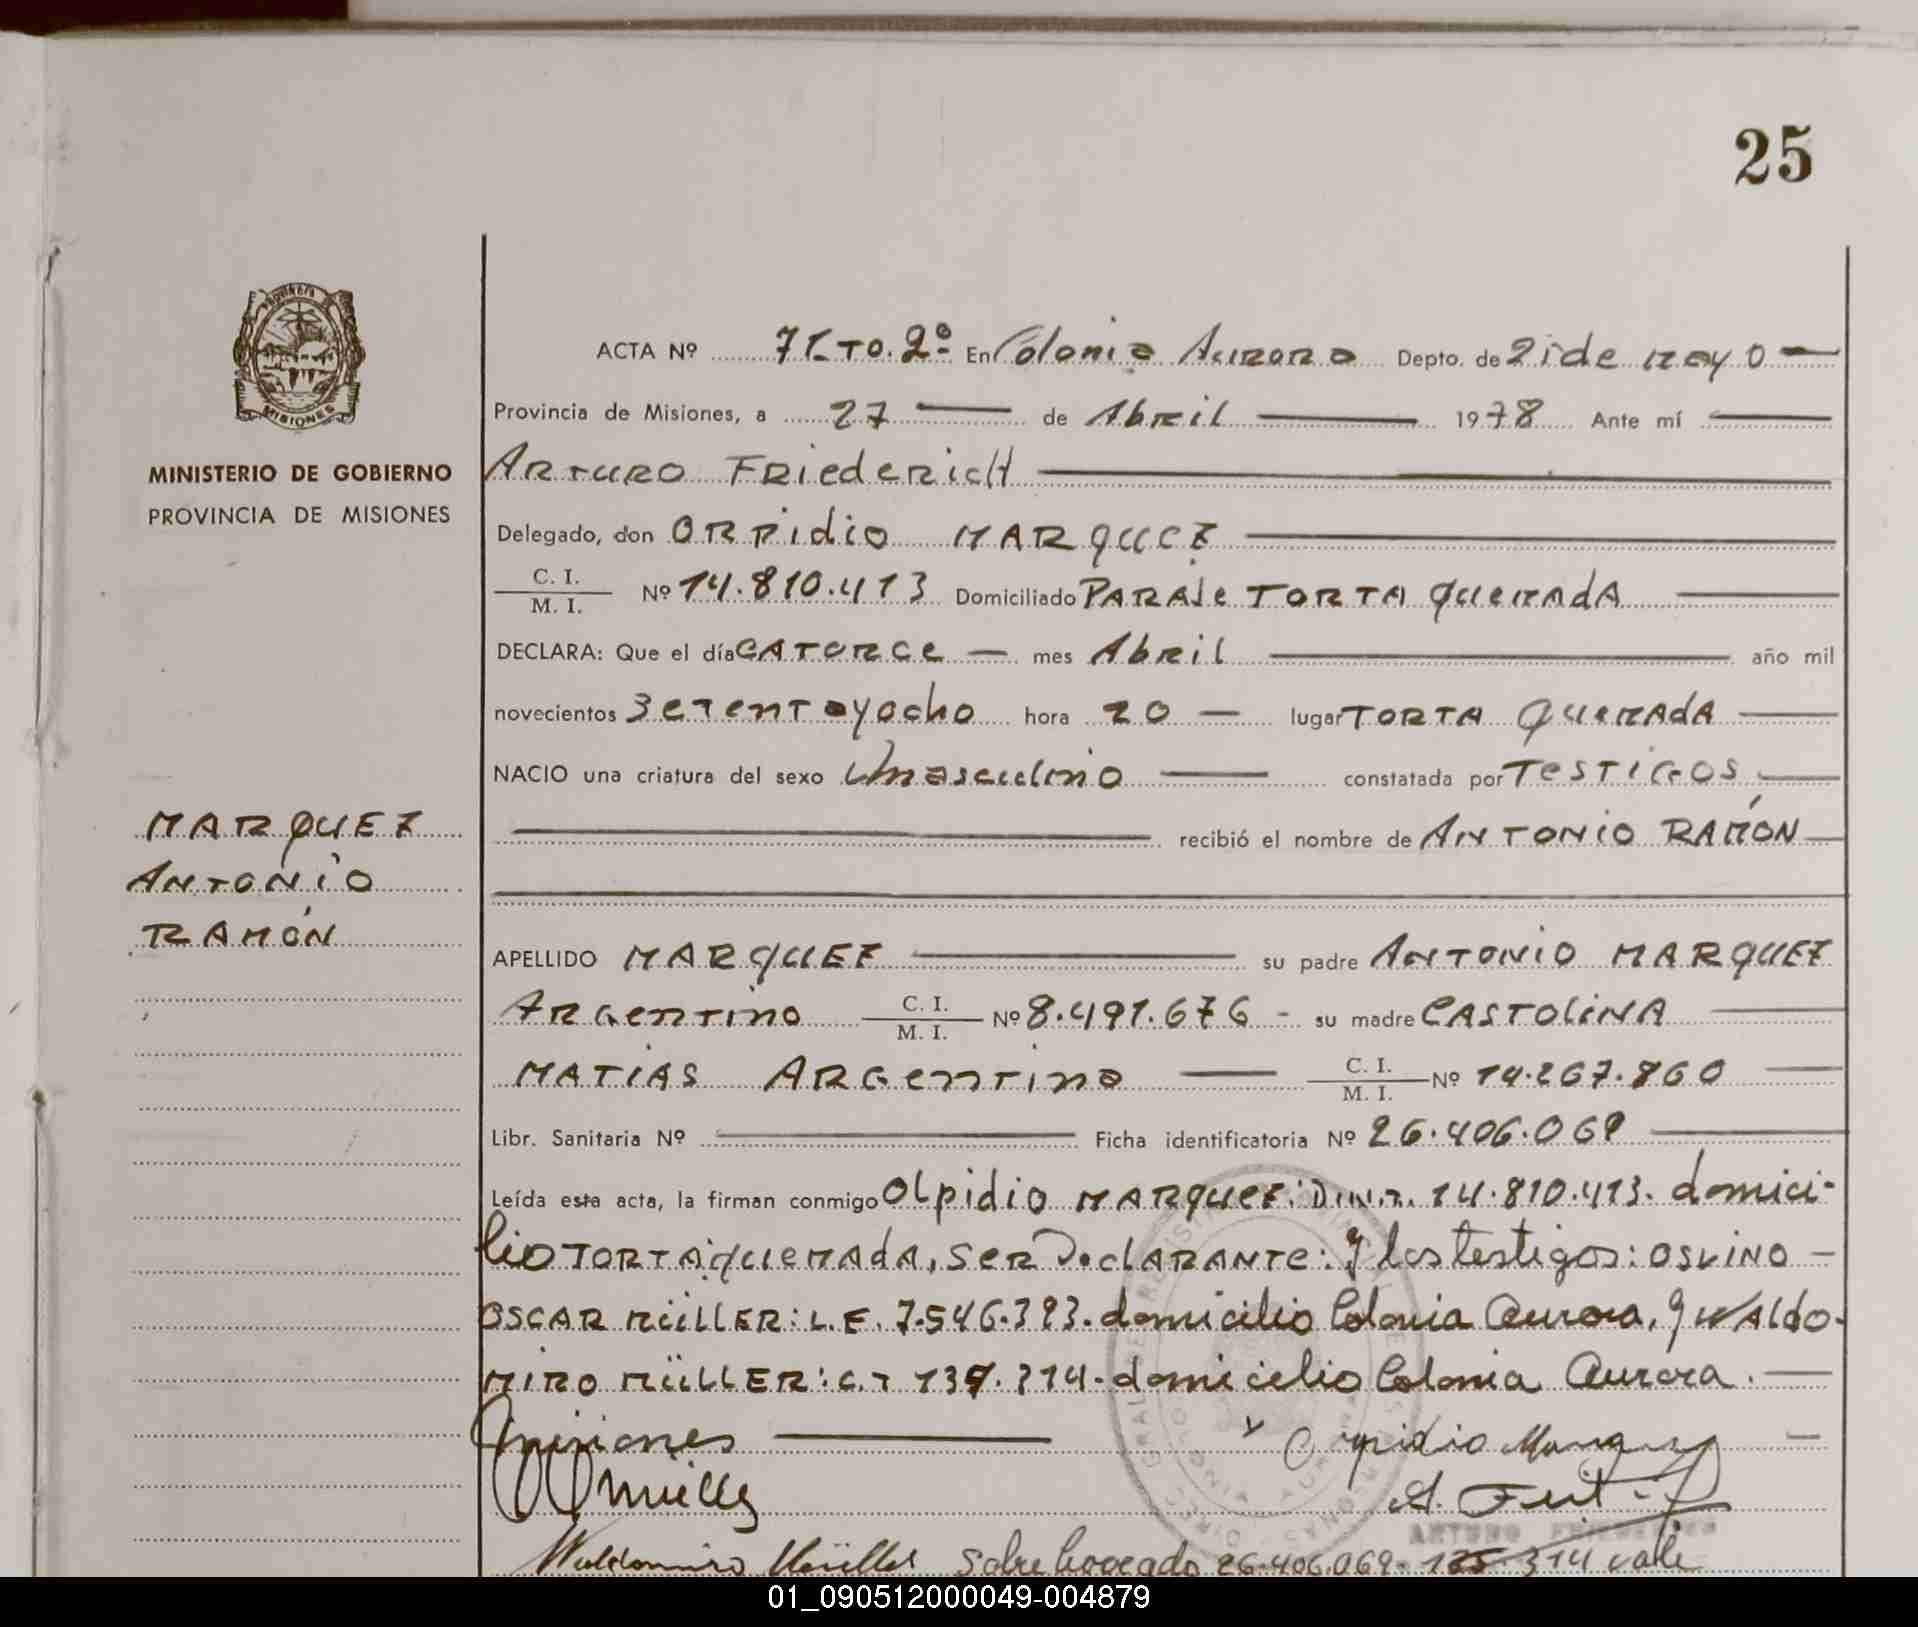 25
ACTA Nº 71 TO. 2º En Colonia Aurora Depto. de 25 de mayo
Provincia de Misiones, a 27 de Abril 1978 Ante mí
ARTURO FRIEDERICH
MINISTERIO DE GOBIERNO
PROVINCIA DE MISIONES
Delegado, don ORPIDIO MARQUEZ
C. I.
M. I. Nº 14.810.413 Domiciliado PARAJE TORTA QUEMADA
DECLARA: Que el día CATORCE mes Abril año mil
novecientos SETENTAyocho hora 20 lugar TORTA QUEMADA
NACIO una criatura del sexo masculino constatada por TESTIGOS
recibió el nombre de ANTONIO RAMÓN
MARQUEZ
ANTONIO
RAMÓN
APELLIDO MARQUEZ su padre ANTONIO MARQUEZ
ARGENTINO C. I.
M. I. Nº 8.491.676 - su madre CASTOLINA
MATIAS ARGENTINA C. I.
M. I. Nº 14.267.860
Libr. Sanitaria Nº Ficha identificatoria Nº 26.406.069
Leída esta acta, la firman conmigo OLpidio MARQUEZ: D.N.I. 14.810.413. domici-
lio TORTA QUEMADA, SER DeCLARANTE: y los testigos: OSVINO
OSCAR MÜLLER: L.E. 7.546.393. domicilio Colonia Aurora, y WALDO-
MIRO MÜLLER: C.I 139.314. domicilio Colonia Aurora.
Misiones
Müller
Waldomiro Müller Sobre borrado 26.406.069- 135.314 vale
ARTURO FRIEDERICH
MISIONES
01_090512000049-004879